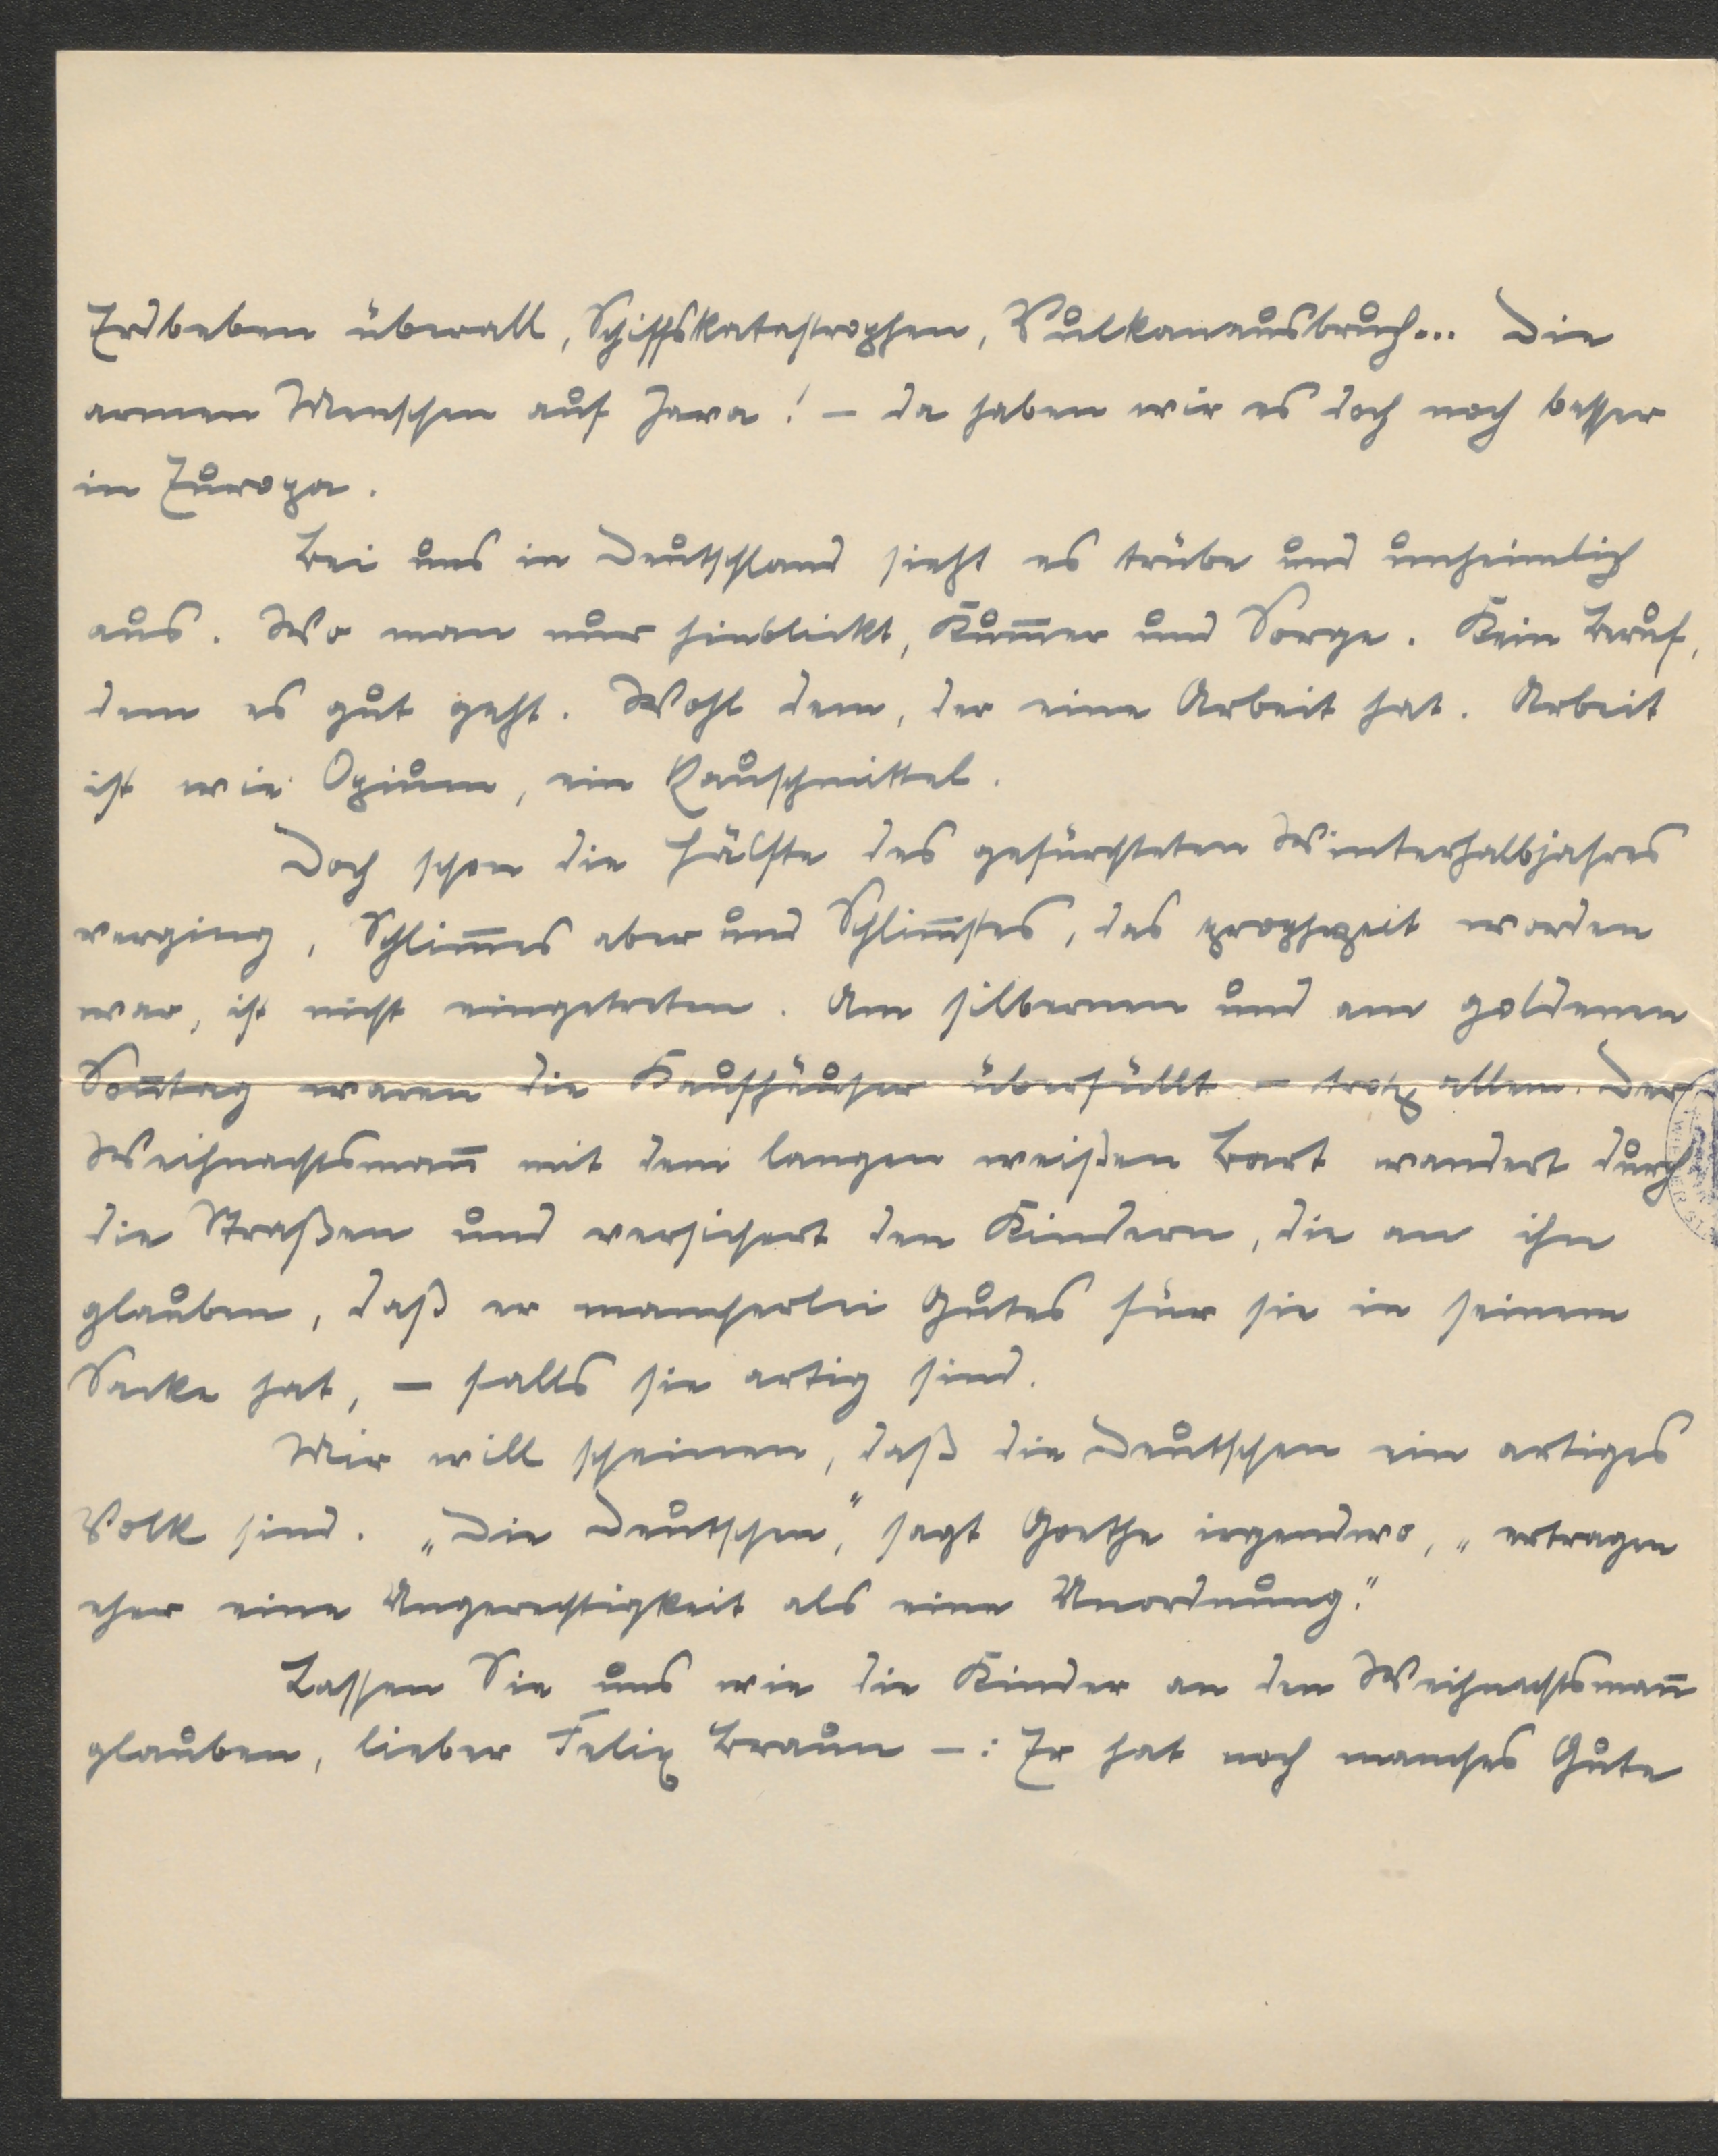 Erdbeben überall, Schiffskatastrophen, Vulkanausbruch... Die
armen Menschen auf Java! – da haben wir es doch noch besser
in Europa.
Bei uns in Deutschland sieht es trübe und unheimlich
aus. Wo man nur hinblickt, Kum̅er und Sorge. Kein Beruf,
dem es gut geht. Wohl dem, der eine Arbeit hat. Arbeit
ist wie Opium, ein Rauschmittel.
Doch schon die Hälfte des gefürchteten Winterhalbjahres
verging, Schlim̅es aber und Schlim̅stes, das prophezeit worden
war, ist nicht eingetreten. Am silbernen und am goldenen
Son̅tag waren die Kaufhäuser überfüllt – trotz allem. Der
Weihnachtsman̅ mit dem langen weißen Bart wandert durch
die Straßen und versichert den Kindern, die an ihn
glauben, daß er mancherlei Gutes für sie in seinem
Sacke hat, – falls sie artig sind.
Mir will scheinen, daß die Deutschen ein artiges
Volk sind. „Die Deutschen“, sagt Goethe irgendwo, „ertragen
eher eine Ungerechtigkeit als eine Unordnung.“
Lassen Sie uns wie die Kinder an den Weihnachtsman̅
glauben, lieber Felix Braun –: Er hat noch manches Gute